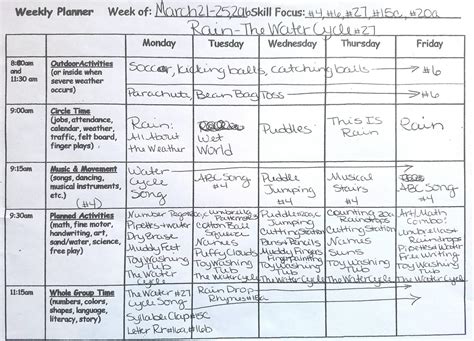 Weekly Planner Week of: March 21-25, 2016 Skill Focus: #4, #6, #27, #15c, #20a
Rain-The Water Cycle #27
Monday Tuesday Wednesday Thursday Friday
8:00am and 11:30 am
Outdoor Activities (or inside when severe weather occurs)
Soccer, kicking balls, catching balls #6
Parachute, Bean Bag Toss #6
9:00am
Circle Time (jobs, attendance, calendar, weather, traffic, felt board, finger plays)
Rain: All About the Weather
Wet World
Puddles
This Is Rain
Rain
9:15am
Music & Movement (songs, dancing, musical instruments, etc.) (#4)
Water Cycle Song
ABC Song #4
Puddle Jumping #4
Musical Stars #4
ABC Song #4
9:30am
Planned Activities (math, fine motor, handwriting, art, sand/water, science, dramatic play)
Number
Pipettes+Water
Dry Erase
Muddy Feet
Toy Washing Tub
The Water
Umbrella Patterns
Cotton Ball
Names
Puffy Clouds
Toy Washing Tub
The Water Cycle
Puddle
Cutting Station
Pens+Pencils
Muddy Fingers
Fingerpainting
Toy Washing Tub
The Water Cycle
Counting Raindrops #20a
Cutting Station
Names
Suns
Toy Washing Tub
The Water Cycle
Art/Math Combo:
umbrellas+
Raindrops
Pipettes+Water
Free Writing
Toy Washing Tub
The Water Cycle
11:15am
Whole Group Time (numbers, colors, shapes, language, literacy, story)
The Water #27
Cycle Song
Syllable Clap #15c
Letter Rr #16a, #16b
Rain Drop
Rhymes #15a